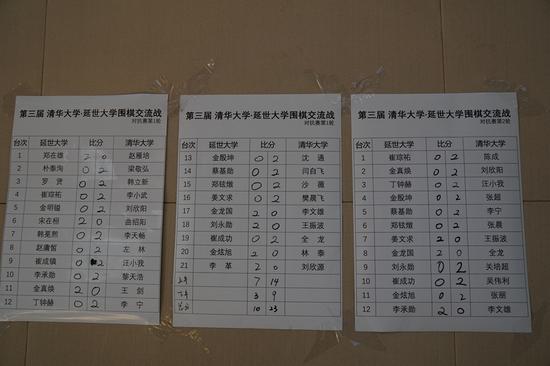 第三届 清华大学·延世大学围棋交流战
对抗赛第1轮
台次 延世大学 比分 清华大学
1 郑在雄 2 0 赵雁培
2 朴泰洵 0 2 梁敬弘
3 罗 贤 0 2 韩立新
4 崔琮祐 0 2 李小武
5 金明镒 0 2 刘欣阳
6 宋在桓 2 0 曲绍阳
7 韩冕熙 0 2 李天畅
8 赵庸皙 0 2 左 林
9 崔成镇 0 2 汪小我
10 李承勋 0 2 黎天浩
11 金真焕 2 0 王 剑
12 丁钟赫 0 2 李 宁
第三届 清华大学·延世大学围棋交流战
对抗赛第1轮
台次 延世大学 比分 清华大学
13 金殷坤 0 2 沈 通
14 蔡基勋 0 2 闫自飞
15 郑铉燉 0 2 沙 薇
16 姜文求 0 2 樊晨飞
17 金龙国 2 0 李文雄
18 刘永勋 2 0 王振波
19 崔成功 0 2 全 龙
20 金炫旭 2 0 林 泰
21 李 革 2 0 刘欣源
上午 7 14
下午 3 9
总分 10 23
第三届 清华大学·延世大学围棋交流战
对抗赛第2轮
台次 延世大学 比分 清华大学
1 崔琮祐 0 2 陈成
2 金真焕 0 2 刘欣阳
3 丁钟赫 0 2 汪小我
4 金殷坤 0 2 张超
5 蔡基勋 0 2 李宁
6 郑铉燉 0 2 张晨
7 姜文求 2 0 王振波
8 金龙国 2 0 全龙
9 刘永勋 0 2 关培超
10 崔成功 0 2 吴伟利
11 金炫旭 0 2 张丽
12 李承勋 2 0 李文雄